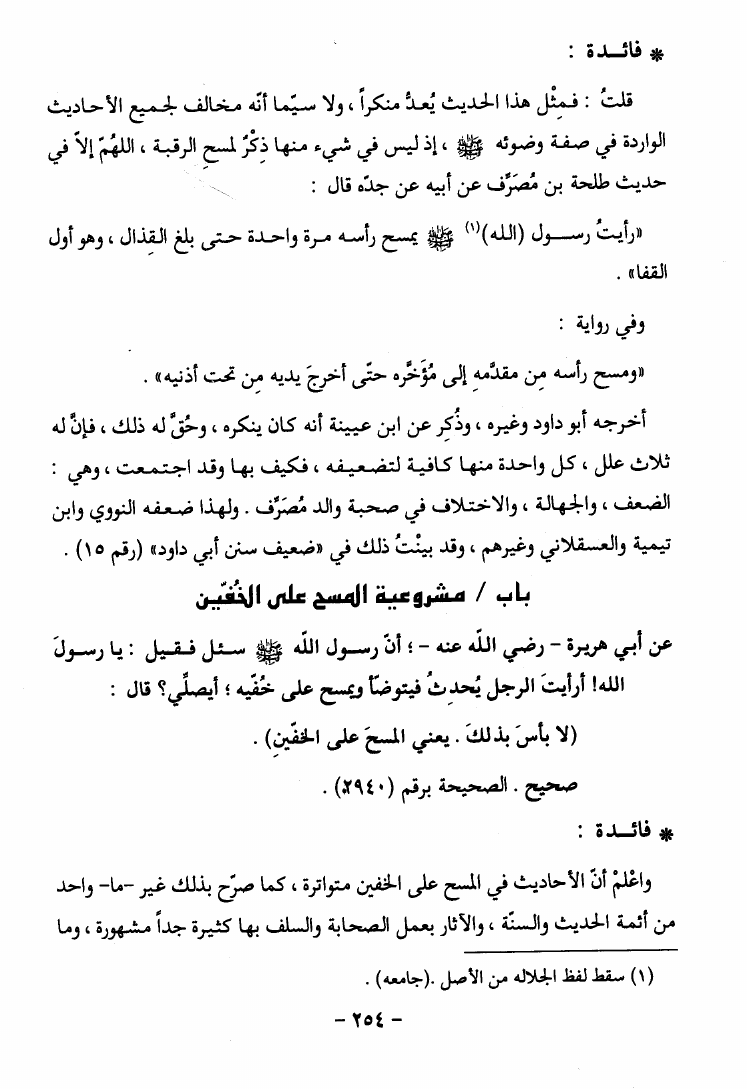 * فائـدة :
قلتُ : فـمِثْل هذا الحديث يُعدُّ منكراً ، ولا سيّما أنّه مخالف لجميع الأحاديث
الواردة في صفة وضوئه ﷺ ، إذ ليس في شيء منها ذِكْرٌ لمسحِ الرقبة ، اللهُمّ إلاّ في
حديث طلحة بن مُصَرِّف عن أبيه عن جدّه قال :
«رأيتُ رسـول (الله)(١) ﷺ يمسح رأسه مرة واحدة حتى بلغ القِذال ، وهو أول
القفا» .
وفي رواية :
«ومسح رأسه مِن مقدَّمهِ إلى مُؤَخَّره حتّى أخرجَ يديه مِن تحت أذنيه» .
أخرجه أبو داود وغيره ، وذُكِر عن ابن عيينة أنه كان ينكره ، وحُقَّ له ذلك ، فإنَّ له
ثلاث علل ، كل واحدة منها كافية لتضعيفه ، فكيف بها وقد اجتمعت ، وهي :
الضعف ، والجهالة ، والاختلاف في صحبة والد مُصَرِّف . ولهذا ضعفه النووي وابن
تيمية والعسقلاني وغيرهم ، وقد بينْتُ ذلك في «ضعيف سنن أبي داود» (رقم ١٥) .
باب / مشروعية المسح على الخُفّين
عن أبي هريرة - رضي اللّه عنه - ؛ أنّ رسـول اللّه ﷺ سـئل فـقيل : يا رسولَ
الله! أرأيتَ الرجل يُحدِثُ فيتوضّأ ويمسح على خُفّيه ؛ أيصلِّي؟ قال :
(لا بأسَ بذلكَ . يعني المسحَ على الخفّينِ) .
صحيح . الصحيحة برقم (٢٩٤٠) .
* فائـدة :
واعْلمْ أنّ الأحاديث في المسح على الخفين متواترة ، كما صرّح بذلك غير -ما- واحد
من أئمة الحديث والسنّة ، والآثار بعمل الصحابة والسلف بها كثيرة جداً مشهورة ، وما
(١) سقط لفظ الجلاله من الأصل .(جامعه) .
- ٢٥٤ -